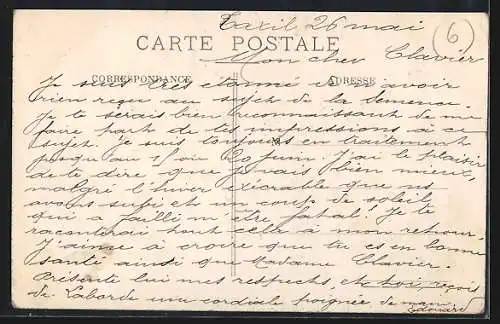 Taxil 26 mai
6
CARTE POSTALE
Mon cher Clavier
CORRESPONDANCE
ADRESSE
Je suis très étonné de ne avoir
rien reçu au sujet de la semence.
Je te serais bien reconnaissant de me
faire part de tes impressions à ce
sujet. Je suis toujours en traitement
jusqu'au 20 juin. J'ai le plaisir
de te dire que je vais bien mieux,
malgré l'hiver exécrable que ns
avons subi et un coup de soleil
qui a failli m'être fatal! Je te
raconterai tout cela à mon retour.
J'aime à croire que tu es en bonne
santé ainsi que Madame Clavier.
Présente lui mes respects, et toi, reçois
de Laborde une cordiale poignée de main
Edouard